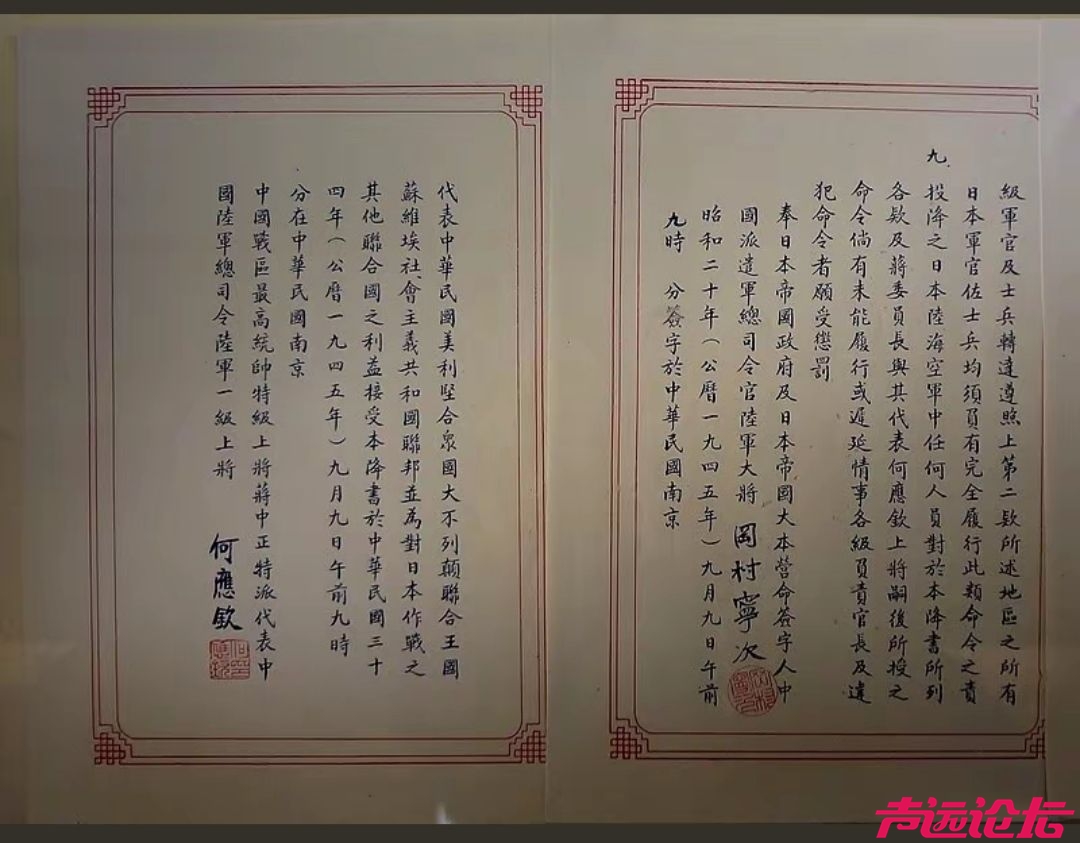 級軍官及士兵轉達遵照上第二欵所述地區之所有
日本軍官佐士兵均須負有完全履行此類命令之責
九、投降之日本陸海空軍中任何人員對於本降書所列
各欵及蔣委員長與其代表何應欽上將嗣後所授之
命令倘有未能履行或遲延情事各級負責官長及違
犯命令者願受懲罰
奉日本帝國政府及日本帝國大本營命簽字人中
國派遣軍總司令官陸軍大將 岡村寧次
昭和二十年（公曆一九四五年）九月九日午前
九時 分簽字於中華民國南京
代表中華民國美利堅合衆國大不列顛聯合王國
蘇維埃社會主義共和國聯邦並為對日本作戰之
其他聯合國之利益接受本降書於中華民國三十
四年（公曆一九四五年）九月九日午前九時
分在中華民國南京
中國戰區最高統帥特級上將蔣中正特派代表中
國陸軍總司令陸軍一級上將 何應欽
声远论坛